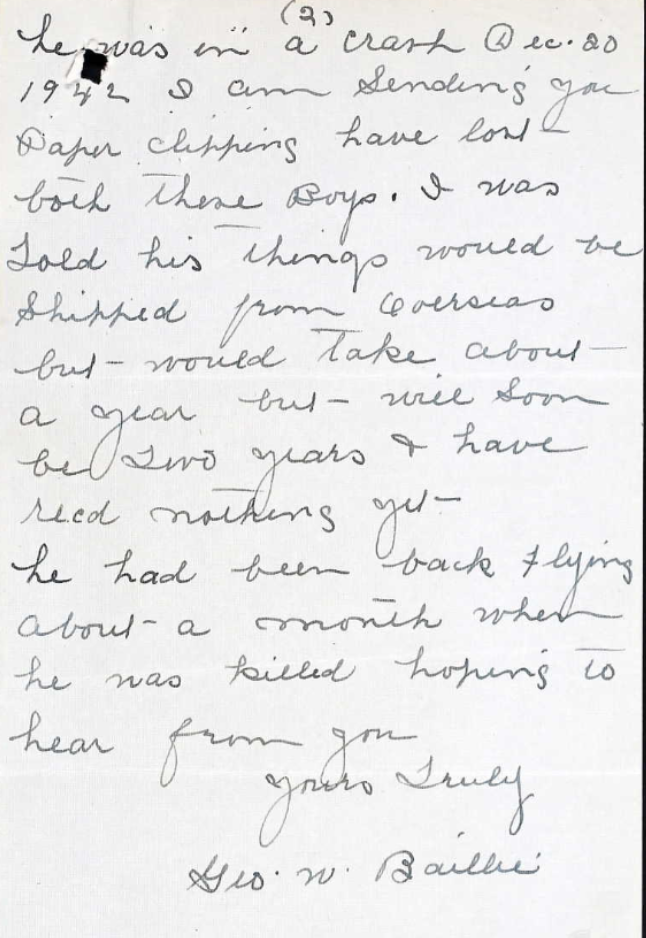 (2)
he was in a crash Dec. 20
1942 I am Sending you
Paper clipping have lost
both these Boys. I was
Told his things would be
Shipped from Overseas
but would Take about
a year but will Soon
be Two years & have
recd nothing yet
he had been back Flying
about a month when
he was killed hoping to
hear from you
yours Truly
Geo. W. Baillie